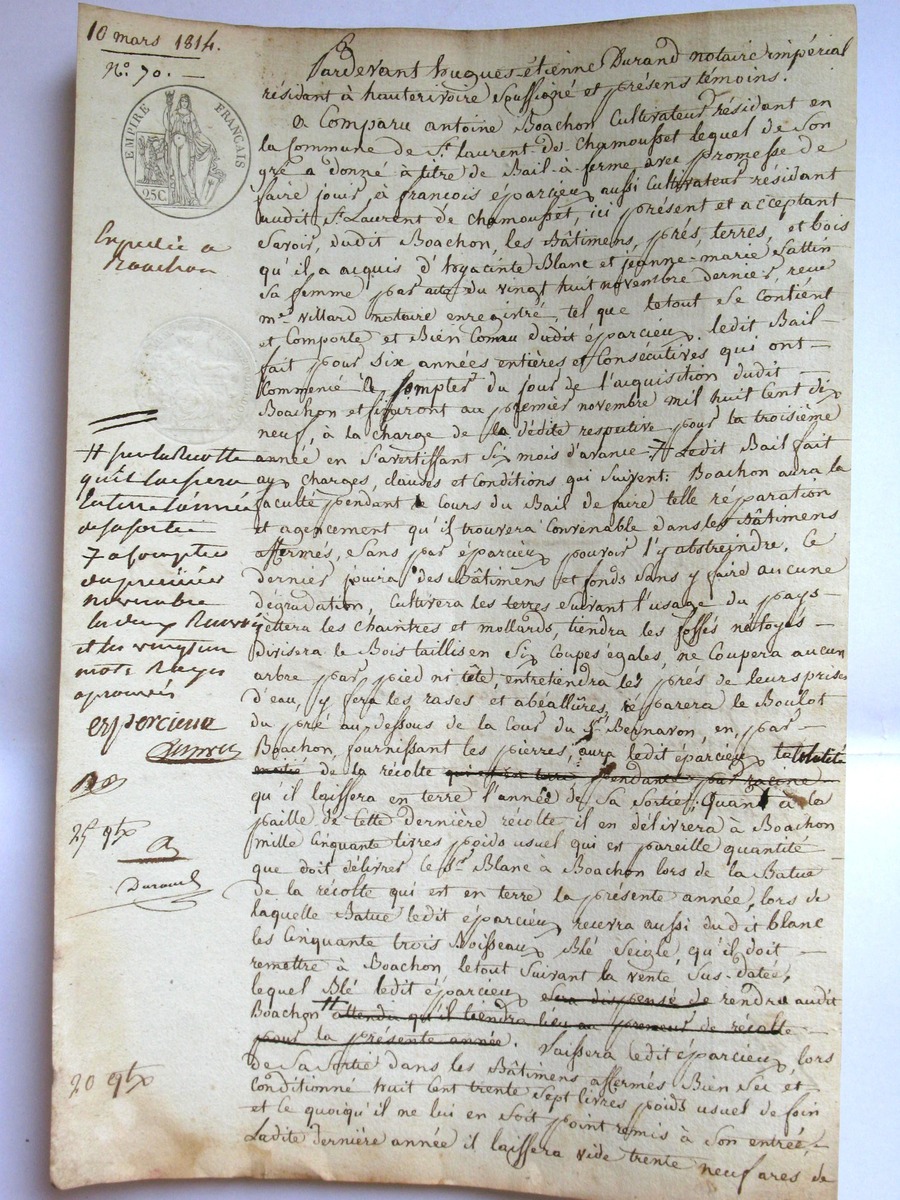 10 mars 1814.
N.º 70. —
EMPIRE FRANÇAIS
25C
Expediée a
Boachon
Pardevant hugues étienne Durand notaire impérial
résidant à hauterivoire soussigné et présens témoins.
A Comparu antoine Boachon Cultivateur résidant en
la Commune de St. Laurent de Chamousset lequel de Son
gré a donné à titre de Bail-à-ferme avec promesse de
faire jouir, à françois éparcieux aussi Cultivateur résidant
audit St. Laurent de Chamousset, ici présent et acceptant
Savoir, dudit Boachon, les Bâtimens, prés, terres, et bois
qu'il a acquis d'hyacinte Blanc et jeanne-marie
Sa femme par acte du vingt huit novembre dernier, reçu
me. Villard notaire enregistré, tel que le tout Se Contient
et Comporte et Bien Connu dudit éparcieux. ledit Bail
fait pour Six années entières et Consécutives qui ont
Commencé à Compter du jour de l'acquisition dudit
Boachon et finiront au premier novembre mil huit Cent dix
neuf, à la charge de la dédite respective pour la troisième
année en S'avertissant Six mois d'avance. Ledit Bail fait
aux charges, clauses et Conditions qui suivent: Boachon aura la
faculté pendant le Cours du Bail de faire telle réparation
et agencement qu'il trouvera Convenable dans les Bâtimens
affermés, Sans par éparcieux pouvoir l'y abstreindre. Ce
dernier jouira des Bâtimens et fonds Sans y faire aucune
dégradation, Cultivera les terres Suivant l'usage du pays
jettera les chaintres et mollards, tiendra les fossés nétoyés
Divisera le Bois taillis en Six Coupes égales, ne Coupera aucun
arbre par pied ni tête, entretiendra les prés de leurs prises
d'eau, y fera les rases et abéallûres, réparera le Boulot
du pré au-dessous de la Cour du Sr. Bernaron, en par
Boachon fournissant les pierres, aura ledit éparcieux la totalité
de la récolte pendante par racine
qu'il laissera en terre l'année de Sa Sortie; Quant à la
paille de Cette dernière récolte il en délivrera à Boachon
mille Cinquante livres poids usuel qui est pareille quantité
que doit délivrer le Sr. Blanc à Boachon lors de la Batue
de la récolte qui est en terre la présente année, lors de
laquelle Batue ledit éparcieux recevra aussi dudit blanc
les Cinquante trois Boisseaux Blé Seigle, qu'il doit
remettre à Boachon, le tout Suivant la vente Sus-datée,
lequel Blé ledit éparcieux sera dispensé de rendre audit
Boachon attendu qu'il tiendra lieu au preneur de récolte
pour la présente année. Laissera ledit éparcieux, lors
de Sa Sortie dans les Bâtimens affermés Bien Sec et
Conditionné huit Cent trente Sept livres poids usuel de foin
et Ce quoiqu'il ne lui en Soit point remis à Son entrée,
Ladite dernière année il laissera vide trente neuf ares de
# pour la Recolte
qu'il laissera
en terre l'année
de sa sortie
7 a Compter
du premier
novembre
les deux Renvois
et les vingt un
mots Rayés
aprouvés
esparcieux
25 qtx
Durand
20 qtx